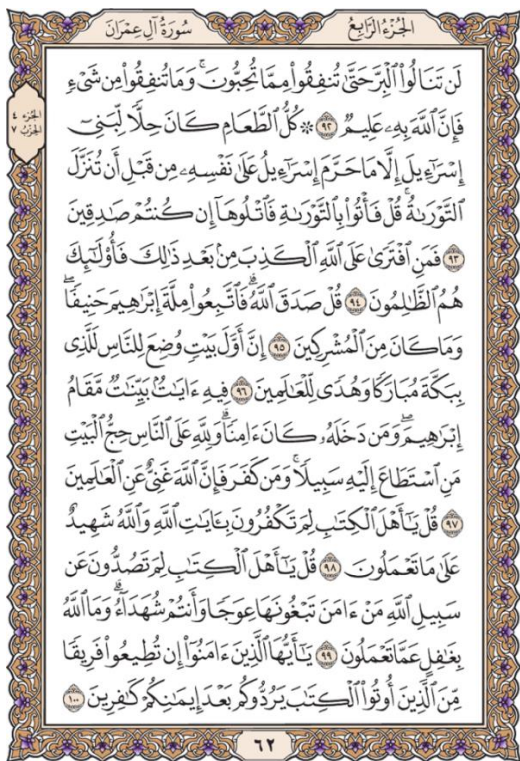 سُورَةُ آلِ عِمْرَانَ
الجُزْءُ الرَّابِعُ
الجزء ٤
الحزب ٧
لَن تَنَالُوا۟ ٱلْبِرَّ حَتَّىٰ تُنفِقُوا۟ مِمَّا تُحِبُّونَۚ وَمَا تُنفِقُوا۟ مِن شَىْءٍ
فَإِنَّ ٱللَّهَ بِهِۦ عَلِيمٌ ٩٢ ۞ كُلُّ ٱلطَّعَامِ كَانَ حِلًّا لِّبَنِىٓ
إِسْرَٰٓءِيلَ إِلَّا مَا حَرَّمَ إِسْرَٰٓءِيلُ عَلَىٰ نَفْسِهِۦ مِن قَبْلِ أَن تُنَزَّلَ
ٱلتَّوْرَىٰةُۗ قُلْ فَأْتُوا۟ بِٱلتَّوْرَىٰةِ فَٱتْلُوهَآ إِن كُنتُمْ صَٰدِقِينَ
٩٣ فَمَنِ ٱفْتَرَىٰ عَلَى ٱللَّهِ ٱلْكَذِبَ مِنۢ بَعْدِ ذَٰلِكَ فَأُو۟لَٰٓئِكَ
هُمُ ٱلظَّٰلِمُونَ ٩٤ قُلْ صَدَقَ ٱللَّهُۗ فَٱتَّبِعُوا۟ مِلَّةَ إِبْرَٰهِيمَ حَنِيفًاۖ
وَمَا كَانَ مِنَ ٱلْمُشْرِكِينَ ٩٥ إِنَّ أَوَّلَ بَيْتٍ وُضِعَ لِلنَّاسِ لَلَّذِى
بِبَكَّةَ مُبَارَكًا وَهُدًى لِّلْعَٰلَمِينَ ٩٦ فِيهِ ءَايَٰتٌۢ بَيِّنَٰتٌ مَّقَامُ
إِبْرَٰهِيمَۖ وَمَن دَخَلَهُۥ كَانَ ءَامِنًاۗ وَلِلَّهِ عَلَى ٱلنَّاسِ حِجُّ ٱلْبَيْتِ
مَنِ ٱسْتَطَاعَ إِلَيْهِ سَبِيلًاۚ وَمَن كَفَرَ فَإِنَّ ٱللَّهَ غَنِىٌّ عَنِ ٱلْعَٰلَمِينَ
٩٧ قُلْ يَٰٓأَهْلَ ٱلْكِتَٰبِ لِمَ تَكْفُرُونَ بِـَٔايَٰتِ ٱللَّهِ وَٱللَّهُ شَهِيدٌ
عَلَىٰ مَا تَعْمَلُونَ ٩٨ قُلْ يَٰٓأَهْلَ ٱلْكِتَٰبِ لِمَ تَصُدُّونَ عَن
سَبِيلِ ٱللَّهِ مَنْ ءَامَنَ تَبْغُونَهَا عِوَجًا وَأَنتُمْ شُهَدَآءُۗ وَمَا ٱللَّهُ
بِغَٰفِلٍ عَمَّا تَعْمَلُونَ ٩٩ يَٰٓأَيُّهَا ٱلَّذِينَ ءَامَنُوٓا۟ إِن تُطِيعُوا۟ فَرِيقًا
مِّنَ ٱلَّذِينَ أُوتُوا۟ ٱلْكِتَٰبَ يَرُدُّوكُم بَعْدَ إِيمَٰنِكُمْ كَٰفِرِينَ ١٠٠
٦٢